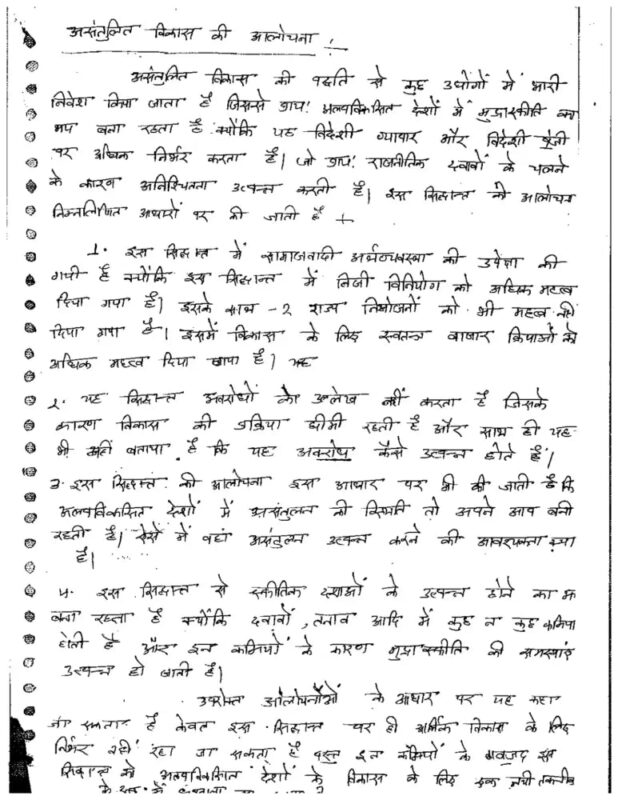 असंतुलित विकास की आलोचना :
असंतुलित विकास की पद्धति से कुछ उधोगों में भारी
निवेश किया जाता है जिससे प्राय: अल्पविकसित देशों में मुद्रास्फीति का
भय बना रहता है क्योंकि यह विदेशी व्यापार और विदेशी पूंजी
पर अधिक निर्भर करता है। जो प्राय: राजनीतिक दवावों के चलने
के कारण अनिश्चितता उत्पन्न करती है। इस सिद्धान्त की आलोचना
निम्नलिखित आधारों पर की जाती है
1. इस सिद्धान्त में समाजवादी अर्थव्यवस्था की उपेक्षा की
गयी है क्योंकि इस सिद्धान्त में निजी विनियोग को अधिक महत्व
दिया गया है। इसके साथ-2 राज्य नियोजनों को भी महत्व नहीं
दिया गया है। इसमें विकास के लिए स्वतन्त्र बाजार क्रियाओं को
अधिक महत्व दिया गया है। यह
2. यह सिद्धान्त अवरोधों का उल्लेख नहीं करता है जिसके
कारण विकास की प्रक्रिया धीमी रहती है और साथ ही यह
भी नहीं बताया है कि यह अवरोध कैसे उत्पन्न होते हैं।
3. इस सिद्धान्त की आलोचना इस आधार पर भी की जाती है कि
अल्पविकसित देशों में असंतुलन की स्थिति तो अपने आप बनी
रहती है। ऐसे में वहां असंतुलन उत्पन्न करने की आवश्यकता क्या
है।
4. इस सिद्धान्त से स्फीतिक दशाओं के उत्पन्न होने का
बना रहता है क्योंकि दवावों, तनाव आदि में कुछ न कुछ कमियां
होती है और इन कमियों के कारण मुद्रास्फीति की समस्याएं
उत्पन्न हो जाती है।
उपरोक्त आलोचनाओं के आधार पर यह कहा
जा सकता है केवल इस सिद्धान्त पर ही आर्थिक विकास के लिए
निर्भर नहीं रहा जा सकता है परन्तु इन कमियों के बावजूद इस
सिद्धान्त को अल्पविकसित देशों के विकास के लिए एक नयी तकनीक
के रूप में